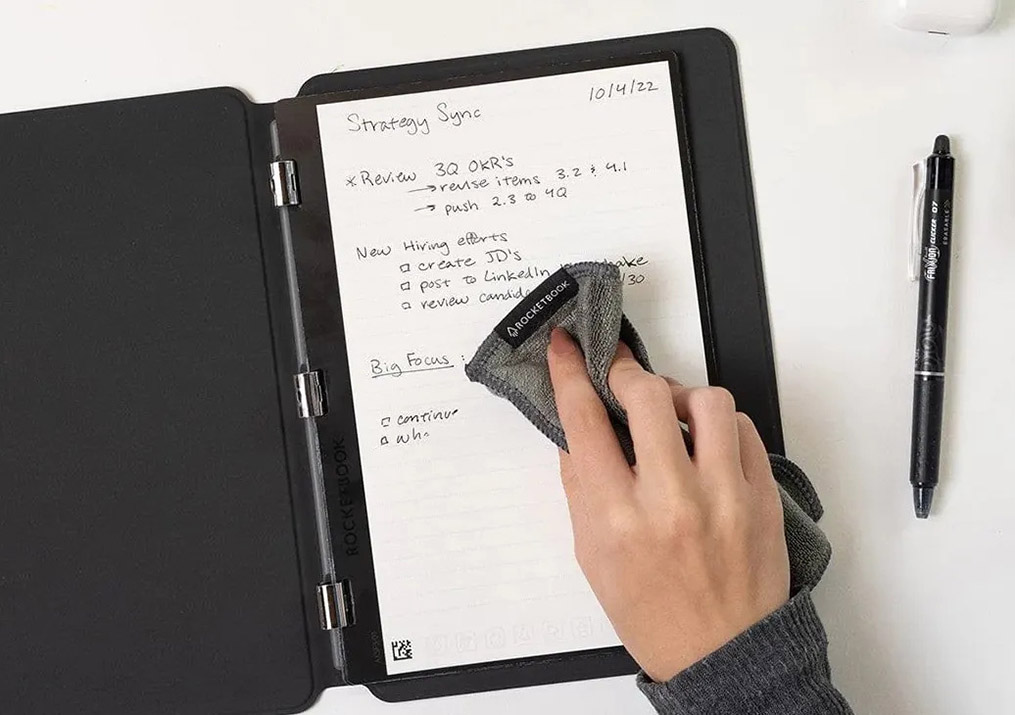 Strategy Sync 10/4/22
*Review 3Q OKR's
→ reuse items 3.2 & 4.1
→ push 2.3 to 4Q
New Hiring efforts
create JD's
post to LinkedIn
review
/30
Big Focus :
continue
ROCKETBOOK
ROCKETBOOK
FRIXION CLICKER 07
ERASABLE